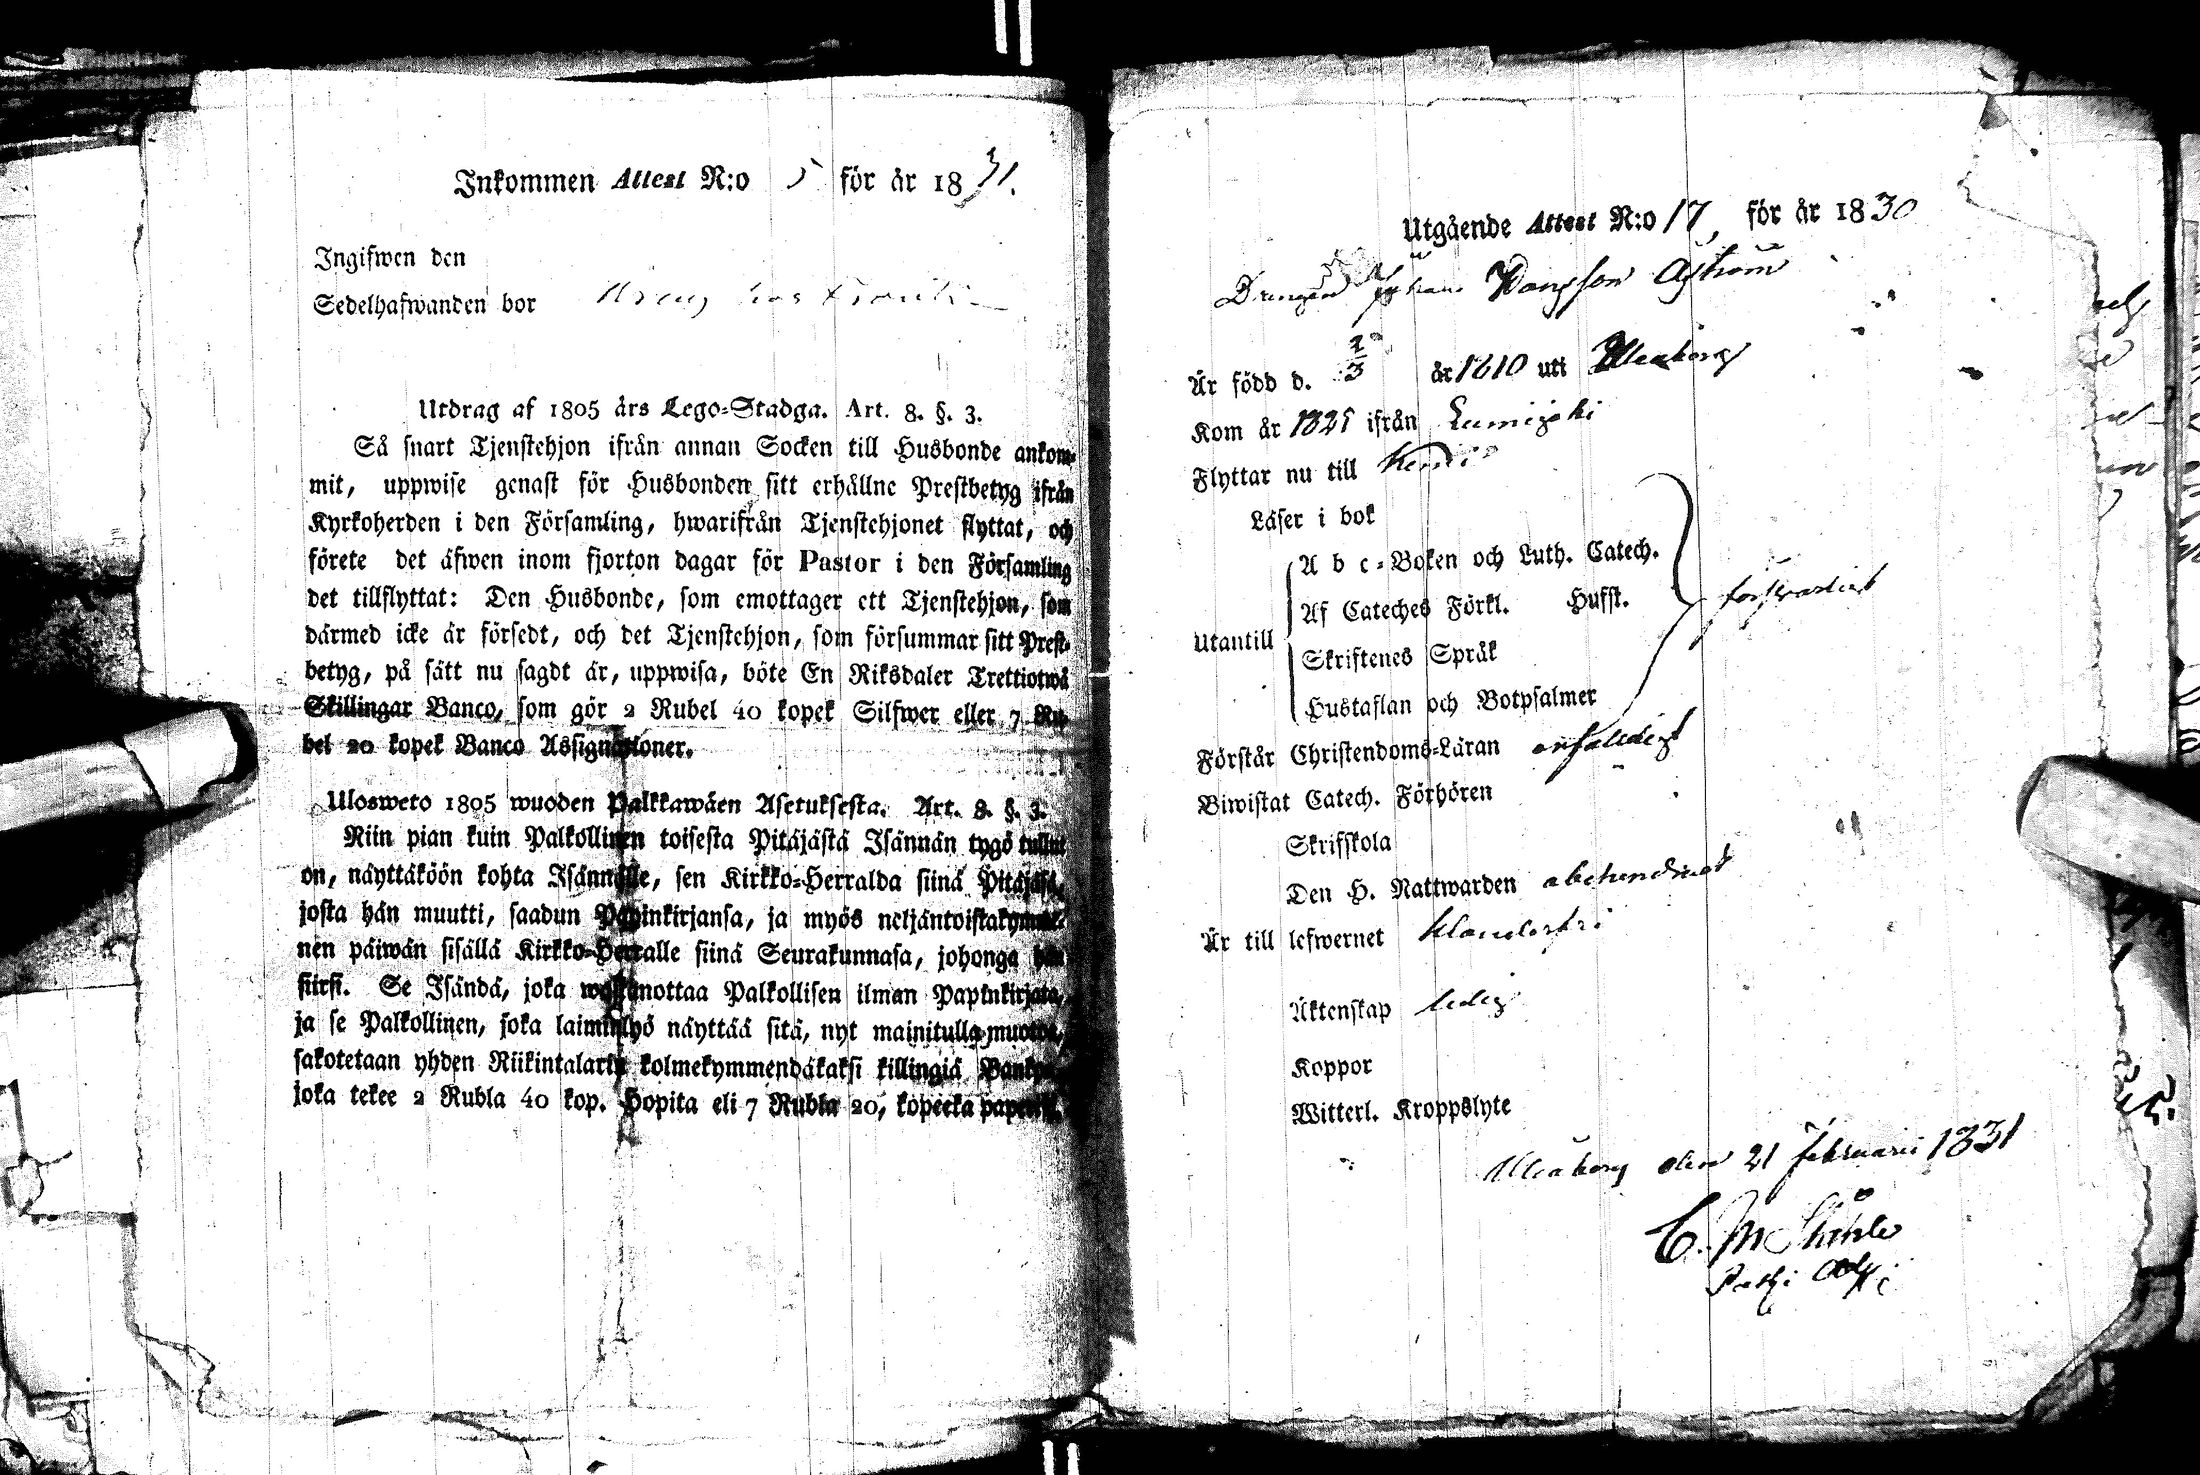 Inkommen Attest N:o 5 för år 1831.
Ingifwen den
Sedelhafwanden bor Dreng hos
Utdrag af 1805 års Lego-Stadga. Art. 8. §. 3.
Så snart Tjenstehjon ifrån annan Socken till Husbonde ankom-
mit, uppwise genast för Husbonden sitt erhållne Prestbetyg ifrån
Kyrkoherden i den Församling, hwarifrån Tjenstehjonet flyttat, och
förete det äfwen inom fjorton dagar för Pastor i den Församling
det tillflyttat: Den Husbonde, som emottager ett Tjenstehjon, som
därmed icke är försedt, och det Tjenstehjon, som försummar sitt Prest-
betyg, på sätt nu sagdt är, uppwisa, böte En Riksdaler Trettiotwå
Skillingar Banco, som gör 2 Rubel 40 kopek Silfwer eller 7 Ru-
bel 20 kopek Banco Assignationer.
Ulosweto 1805 wuoden Palkkawäen Asetuksesta. Art. 8. §. 3.
Niin pian kuin Palkollinen toisesta Pitäjästä Isännän tygö tullut
on, näyttäköön kohta Isännälle, sen Kirkko-Herralda siinä Pitäjäsä,
josta hän muutti, saadun Papinkirjansa, ja myös neljäntoistakymme-
nen päiwän sisällä Kirkko-Herralle siinä Seurakunnasa, johonga hän
siirsi. Se Isändä, joka wastanottaa Palkollisen ilman Papinkirjata,
ja se Palkollinen, joka laiminlyö näyttää sitä, nyt mainitulla muotoa,
sakotetaan yhden Riikintalarin kolmekymmendäkaksi killingiä Bankos,
joka tekee 2 Rubla 40 kop. Hopita eli 7 Rubla 20, kopecka paperis.
Utgående Attest N:o 17, för år 1830
Drengen Johan Hansson Åström
Är född d. 2/3 år 1810 uti Uleåborg
Kom år 1825 ifrån Lumijoki
Flyttar nu till Kemi
Läser i bok
A b c-Boken och Luth. Catech.
Af Cateches Förkl. Hufst.
Utantill
försvarligt
Skriftenes Språk
Hustaflan och Botpsalmer
Förstår Christendoms-Läran enfaldigt
Biwistat Catech. Förhören
Skrifskola
Den H. Nattwarden obehindrad
Är till lefwernet klanderfri
Äktenskap ledig
Koppor
Witterl. Kroppslyte
Uleåborg den 21 Februarii 1831
C. M.